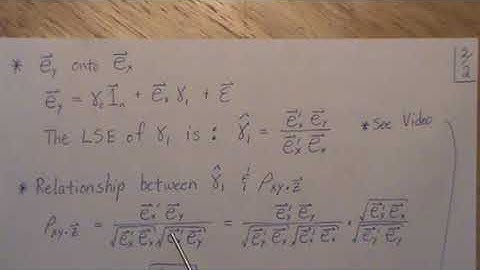 * e⃗y onto e⃗x
2/2
e⃗y = γ₀ 1⃗n + e⃗x γ₁ + ε⃗
The LSE of γ₁ is : γ̂₁ = e⃗x' e⃗y / e⃗x' e⃗x * See Video
* Relationship between γ̂₁ & ρxy·z⃗
ρxy·z⃗ = e⃗x' e⃗y / √(e⃗x' e⃗x) √(e⃗y' e⃗y) = e⃗x' e⃗y / √(e⃗x' e⃗x) √(e⃗x' e⃗x) · √(e⃗x' e⃗x) / √(e⃗y' e⃗y)